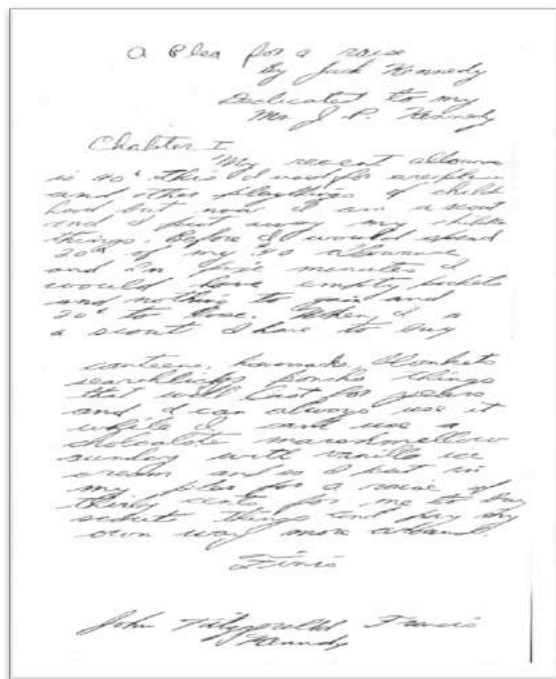 A Plea for a raise
By Jack Kennedy
Dedicated to my
Mr. J. P. Kennedy
Chapter I
My recent allowance
is 40¢. This I used for areoplanes
and other playthings of childhood
but now I am a scout
and I put away my childish
things. Before I would spend
20¢ of my .40 allowance
and In five minutes I
would have empty pockets
and nothing to gain and
20¢ to lose. When I a
a scout I have to buy
canteens, haversacks, blankets
searchlidgs poncho things
that will last for years
and I can always use it
while I cant use a
chocalote marshmellow
sunday with vanilla ice
cream and so I put in
my plea for a raise of
thirty cents for me to buy
scout things and pay my
own way more around.
Finis
John Fitzgerald Francis
Kennedy